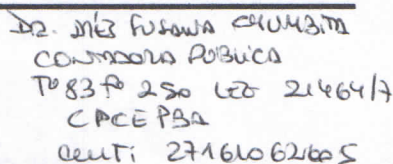 DRA. INÉS SUSANA CHUMBITA
CONTADORA PÚBLICA
Tº 83 Fº 250 LEG 21464/7
CPCEPBA
CUIT: 27161062605